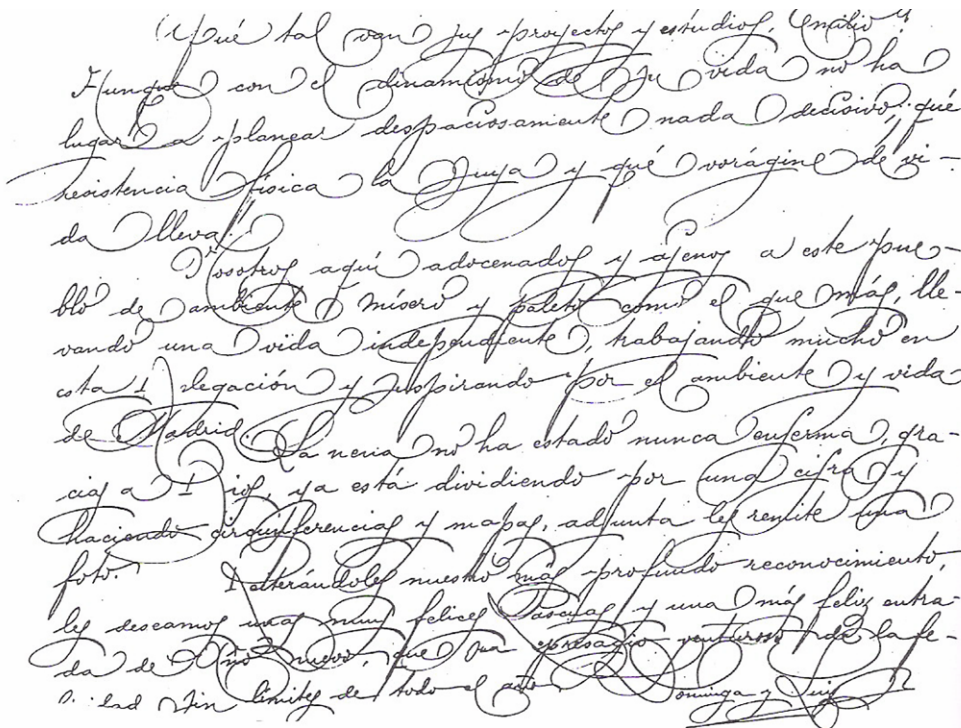 ¿Qué tal van sus proyectos y estudios, Emilio?
Aunque con el dinamismo de su vida no ha
lugar a planear despaciosamente nada decisivo, ¡qué
resistencia física la suya y qué vorágine de vi-
da lleva!
Nosotros aquí adocenados y ajenos a este pue-
blo de ambiente mísero y paleto como el que más, lle-
vando una vida independiente, trabajando mucho en
esta Delegación y suspirando por el ambiente y vida
de Madrid. La nena no ha estado nunca enferma, gra-
cias a Dios, ya está dividiendo por una cifra y
haciendo circunferencias y mapas, adjunta les remite una
foto. Reiterándoles nuestro más profundo reconocimiento,
les deseamos unas muy felices Pascuas y una más feliz entra-
da de Año Nuevo, que sea presagio venturoso de la fe-
licidad sin límites de todo el año.
Dominga y Luis